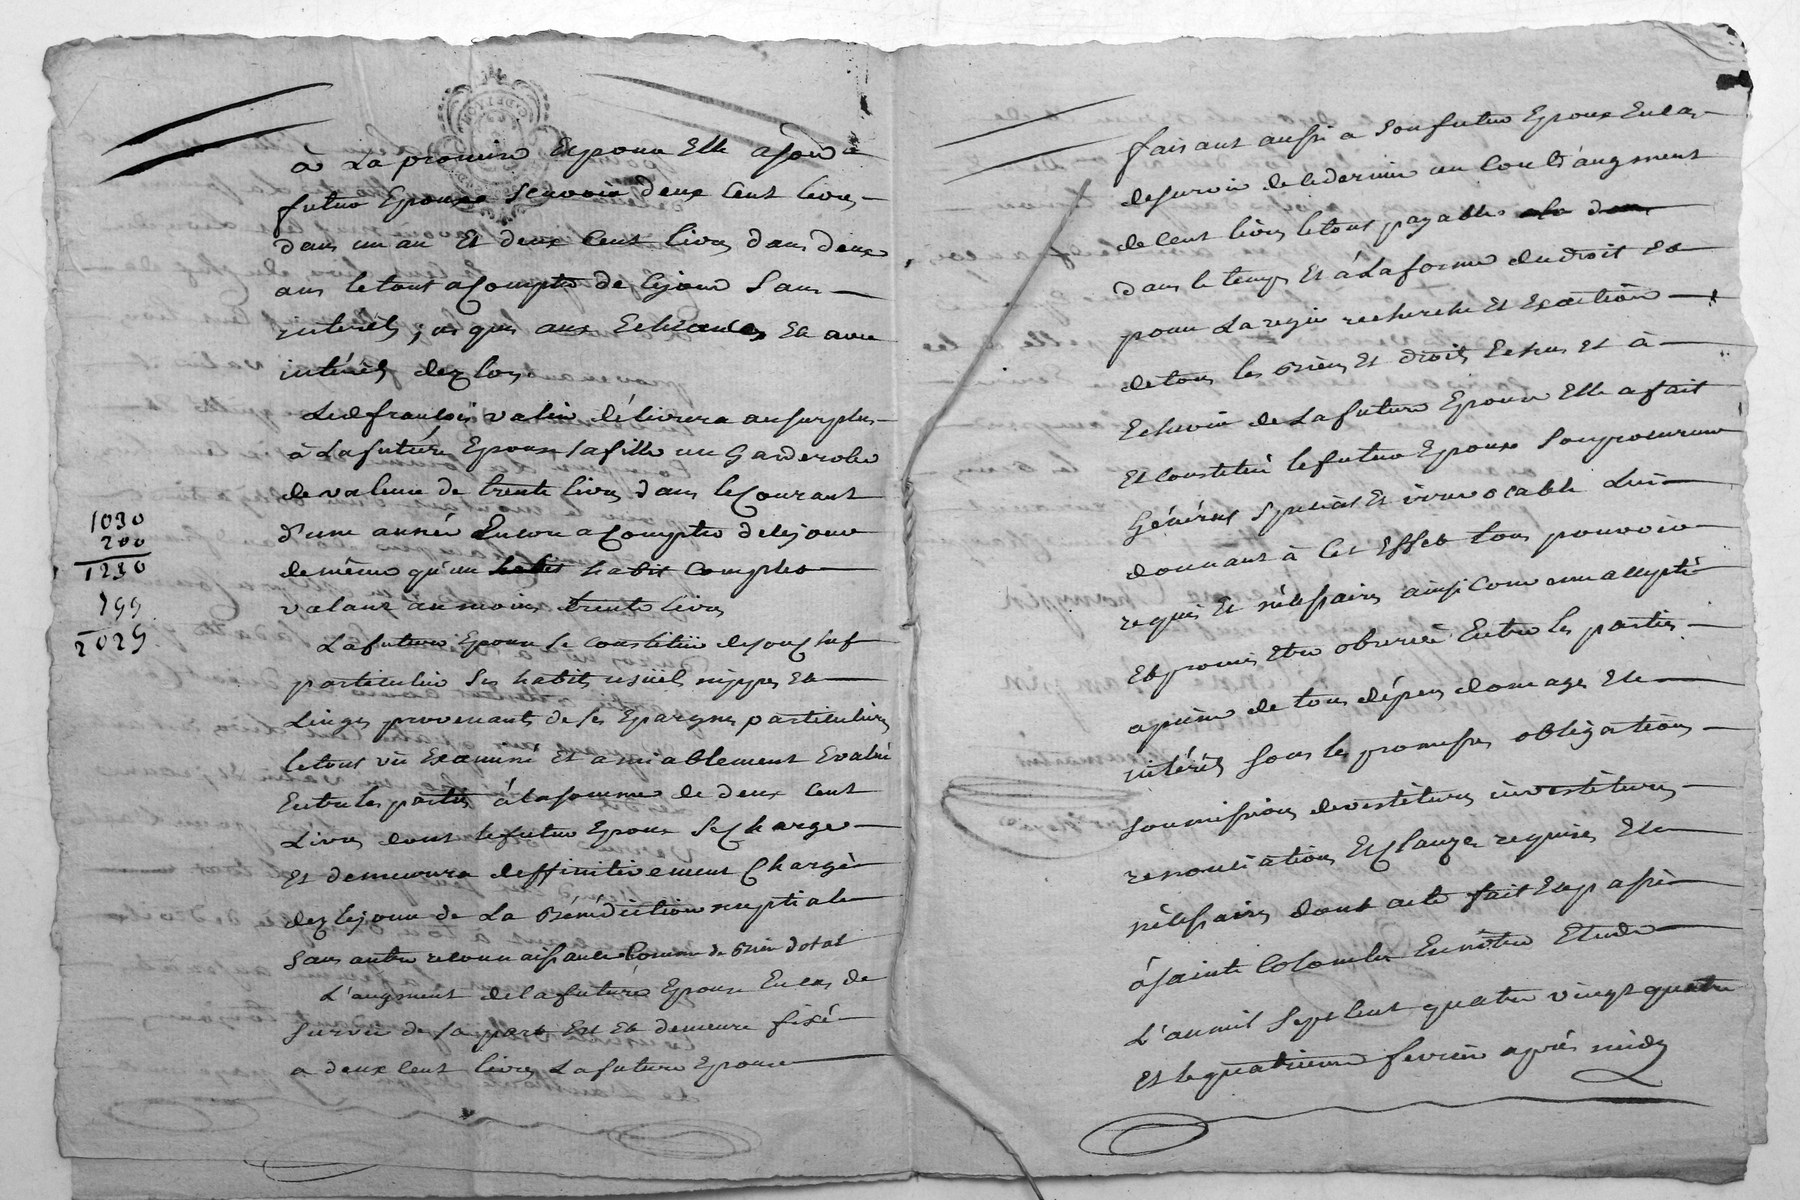 à La promise Epouse Elle
futur Epoux sçavoir deux Cent livres
dans un an Et deux Cent livres dans deux
ans le tout a Compter de ce jour Sans
interêts jusques aux Echeances Et avec
intérêts dez lors
Led françois valin délivrera au surplus
à La future Epouse sa fille un Garderobe
de valeur de trente livres dans le Courant
d'une année Encore a Compter de ce jour
de même qu'un habit Complet
valant au moins trente livres
1030
200
1230
799
2029
La future Epouse se constitüe de son chef
particulier Ses habits usüels nippes Et
Linges provenants de ses Epargnes particulieres
le tout vü Examiné Et amiablement Evalüé
Entre les parties à la somme de deux Cent
Livres dont le futur Epoux Se Charge
Et demeurera deffinitivement Chargé
dez le jour de La Bénédiction nuptiale
Sans autre reconnaissance Comme de Bien dotal
L'augment de la future Epouse En cas de
Survie de sa part Est Et demeure fixé
a deux Cent livres La future Epouse
faisant aussi a Son futur Epoux En cas
de survie de ce dernier un Contr'augment
de Cent livres le tout payable
dans le temps Et à La forme du droit Et
pour La regie recherche Et Exaction
de tous les Biens Et droits Echus Et à
Echeoir de La future Epouse Elle a fait
Et constitüé le futur Epoux Son procureur
Général Spécial Et irrevocable Lui
donnant à Cet Effet tous pouvoirs
requis Et nécessaires ainsi convenu accepté
Et promis Etre observé Entre les parties
a peine de tous dépens domages Et
intérêts sous les promesses obligations
soumissions devestitures investitures
renonciations Et Clauzes requises Et
nécessaires dont acte fait Et passé
à sainte Colombe En nôtre Etude
L'an mil Sept Cent quatre vingt quatre
Et le quatrieme fevrier après midy